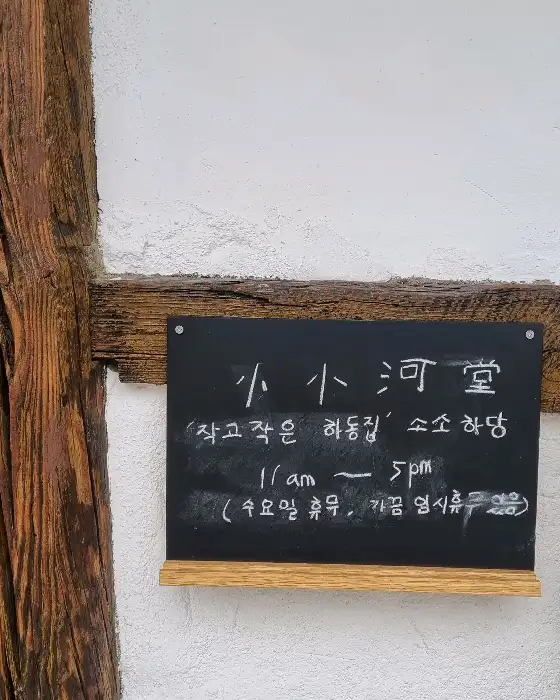 小小河堂
'작고작은 하동집' 소소하당
11am ― 5pm
(수요일 휴무, 가끔 임시휴무있음)